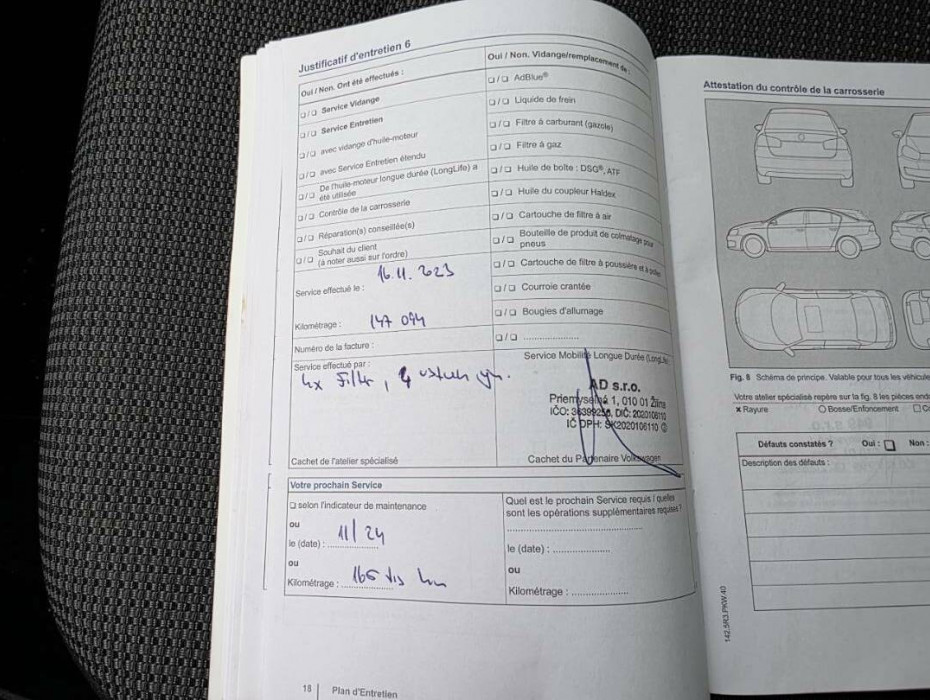 Justificatif d'entretien 6
Oui / Non. Ont été effectués :
❑/❑ Service Vidange
❑/❑ Service Entretien
❑/❑ avec vidange d'huile-moteur
❑/❑ avec Service Entretien étendu
❑/❑ De l'huile-moteur longue durée (LongLife) a
été utilisée
❑/❑ Contrôle de la carrosserie
❑/❑ Réparation(s) conseillée(s)
❑/❑ Souhait du client
(à noter aussi sur l'ordre)
Service effectué le : 16.11.2023
Kilométrage : 147 094
Numéro de la facture :
Service effectué par :
4x Filtr, 4
Cachet de l'atelier spécialisé
Oui / Non. Vidange/remplacement de :
❑/❑ AdBlue®
❑/❑ Liquide de frein
❑/❑ Filtre à carburant (gazole)
❑/❑ Filtre à gaz
❑/❑ Huile de boîte : DSG®, ATF
❑/❑ Huile du coupleur Haldex
❑/❑ Cartouche de filtre à air
❑/❑ Bouteille de produit de colmatage pour
pneus
❑/❑ Cartouche de filtre à poussière et à
❑/❑ Courroie crantée
❑/❑ Bougies d'allumage
❑/❑ ....................
Service Mobilité Longue Durée (LongLife)
AD s.r.o.
Priemyselná 1, 010 01 Žilina
IČO: 36399256, DIČ: 2020106110
IČ DPH: SK2020106110
Cachet du Partenaire Volkswagen
Votre prochain Service
❑ selon l'indicateur de maintenance
ou
le (date) : 11/24
ou
Kilométrage : 165 tis km
Quel est le prochain Service requis / quelles
sont les opérations supplémentaires requises ?
le (date) : ....................
ou
Kilométrage : ....................
18 | Plan d'Entretien
Attestation du contrôle de la carrosserie
Fig. 8 Schéma de principe. Valable pour tous les véhicule
Votre atelier spécialisé repère sur la fig. 8 les pièces end
x Rayure ○ Bosse/Enfoncement ❑
Défauts constatés ? Oui : ❑ Non :
Description des défauts :
142.5R3.PKW.40